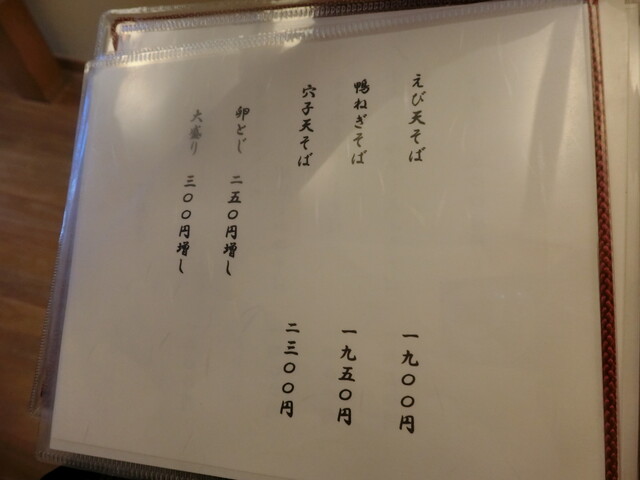 えび天そば 一九〇〇円
鴨ねぎそば 一九五〇円
穴子天そば 二三〇〇円
卵とじ 二五〇円増し
大盛り 三〇〇円増し